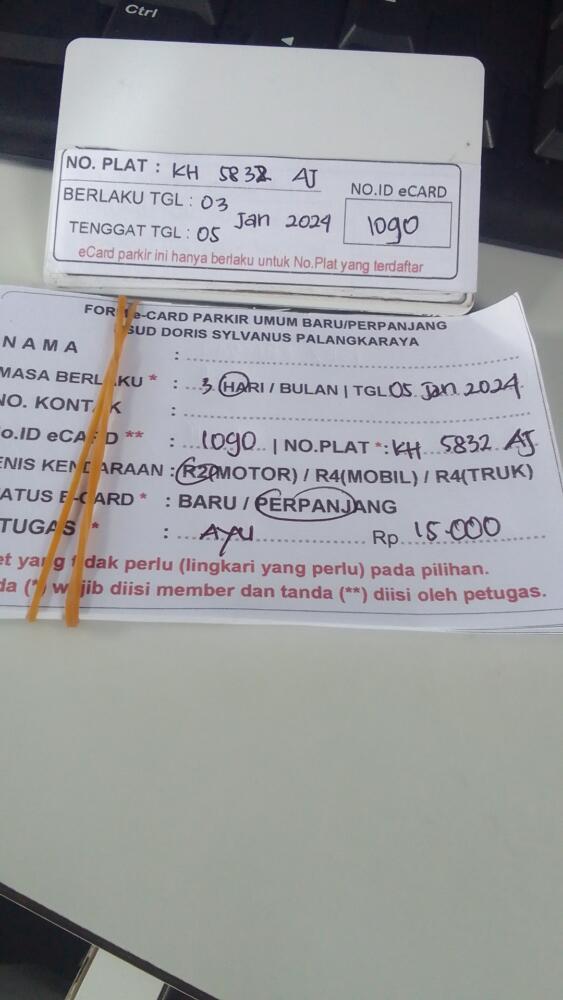 Ctrl
NO. PLAT : KH 5832 AJ
BERLAKU TGL : 03 Jan 2024
NO.ID eCARD
TENGGAT TGL : 05
1090
eCard parkir ini hanya berlaku untuk No.Plat yang terdaftar
e-CARD PARKIR UMUM BARU/PERPANJANG
SUD DORIS SYLVANUS PALANGKARAYA
NAMA :
MASA BERLAKU * : 3 HARI / BULAN | TGL 05 Jan 2024
NO. KONTAK :
o.ID eCARD ** : 1090 | NO.PLAT *: KH 5832 AJ
ENIS KENDARAAN : R2(MOTOR) / R4(MOBIL) / R4(TRUK)
ATUS E-CARD * : BARU / PERPANJANG
TUGAS * : AYU Rp. 15.000
et yang tidak perlu (lingkari yang perlu) pada pilihan.
da (*) wajib diisi member dan tanda (**) diisi oleh petugas.